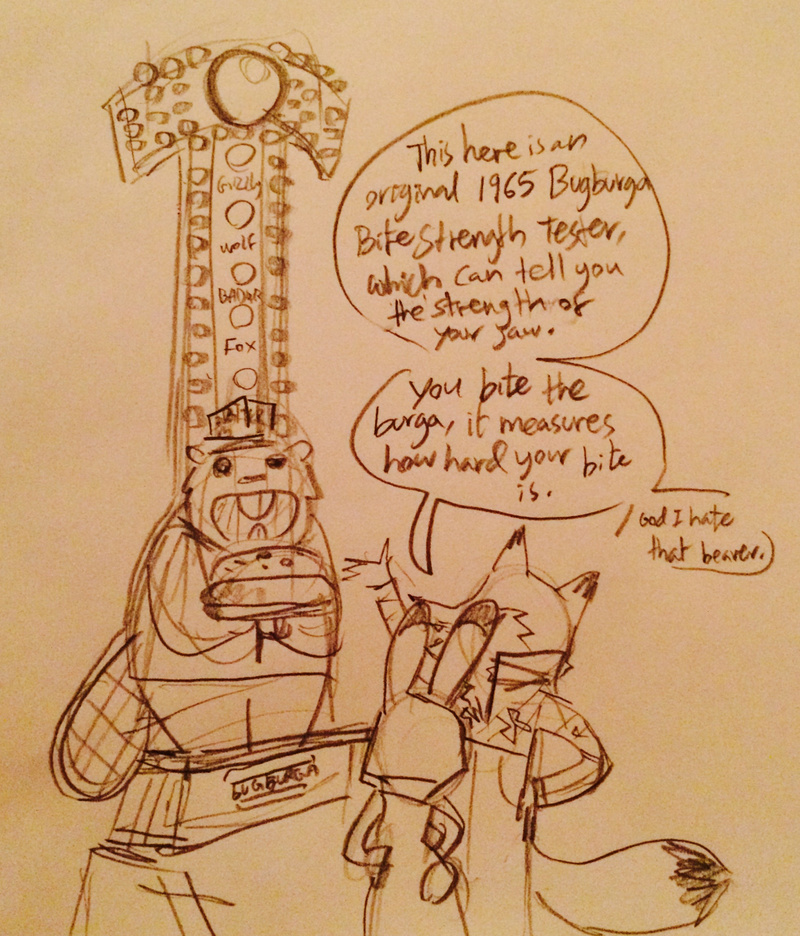 This here is an
original 1965 Bugburga
Bite Strength Tester,
which can tell you
the strength of
your jaw.
You bite the
burga, it measures
how hard your bite
is.
God I hate
that beaver.
Grizzly
wolf
BADGR
Fox
BUGBURGA